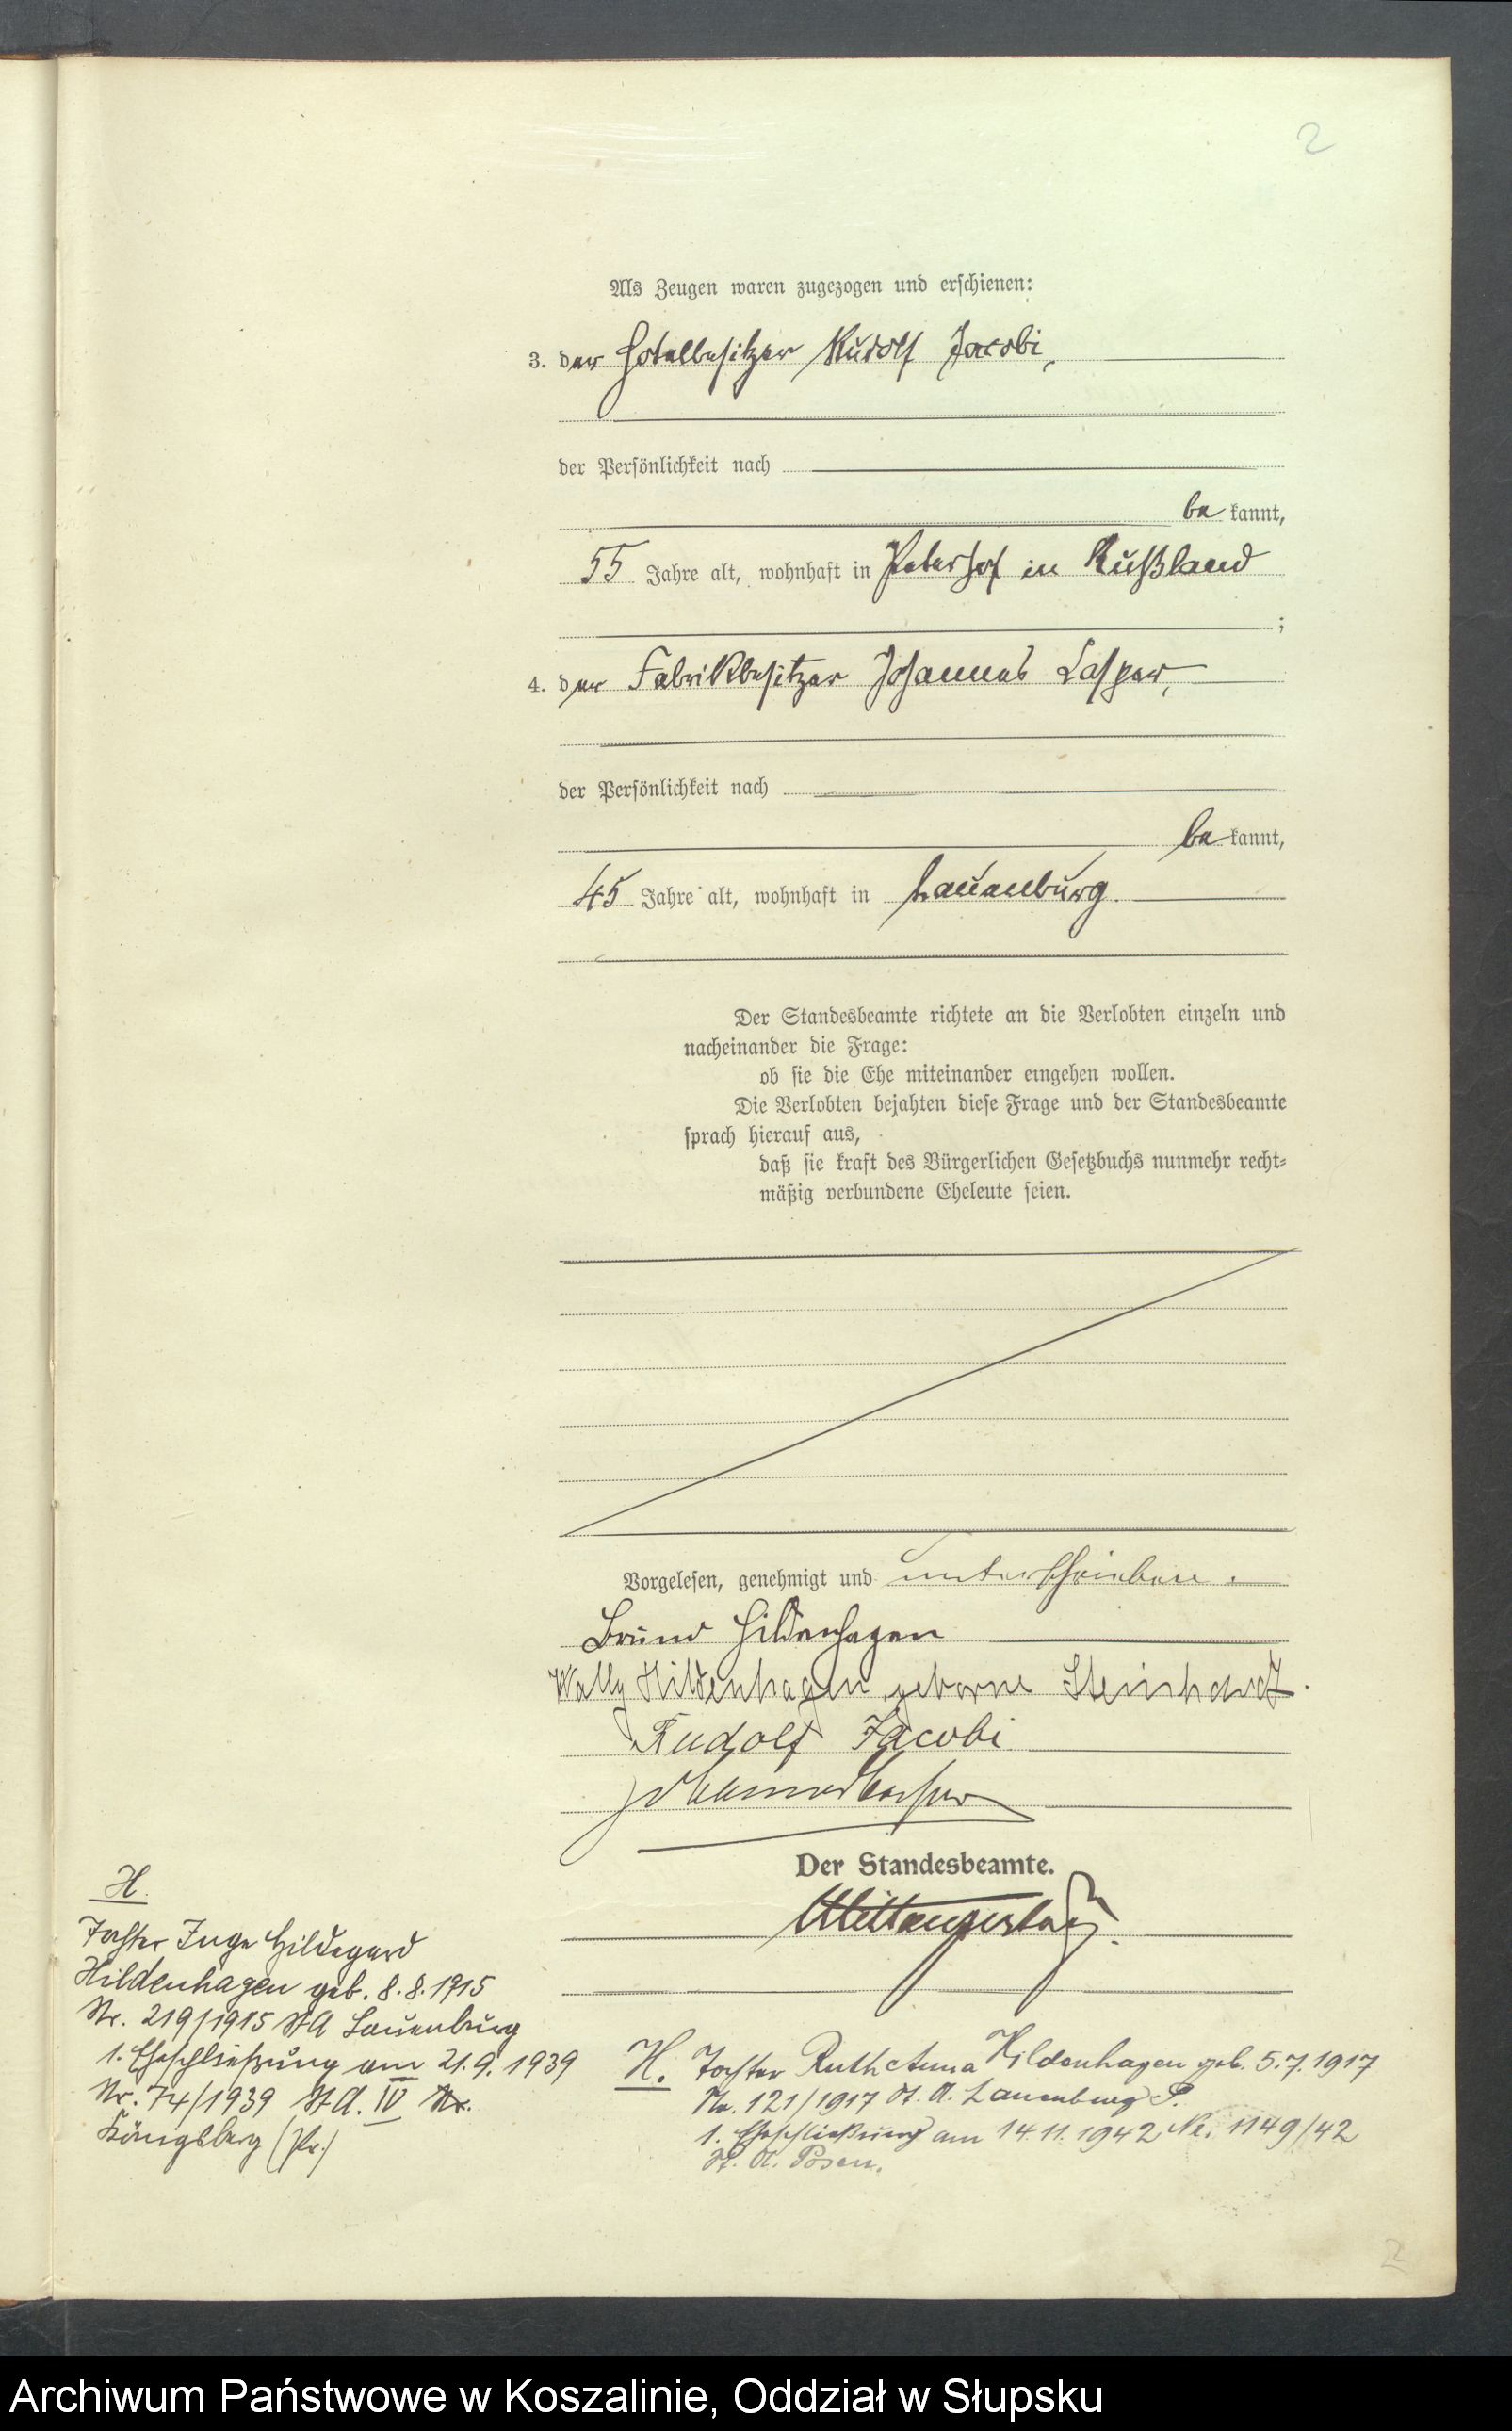 2
Als Zeugen waren zugezogen und erschienen:
3. der Hotelbesitzer Rudolf Jacobi,
der Persönlichkeit nach
be kannt,
55 Jahre alt, wohnhaft in Peterhof in Rußland
;
4. der Fabrikbesitzer Johannes Casper,
der Persönlichkeit nach
be kannt,
45 Jahre alt, wohnhaft in Lauenburg.
Der Standesbeamte richtete an die Verlobten einzeln und
nacheinander die Frage:
ob sie die Ehe miteinander eingehen wollen.
Die Verlobten bejahten diese Frage und der Standesbeamte
sprach hierauf aus,
daß sie kraft des Bürgerlichen Gesetzbuchs nunmehr recht-
mäßig verbundene Eheleute seien.
Vorgelesen, genehmigt und unterschrieben.
Bruno Hildenhagen
Wally Hildenhagen geborne Steinhardt.
Rudolf Jacobi
Johannes Casper
Der Standesbeamte.
H.
Tochter Inge Hildegard
Hildenhagen geb. 8.8.1915
Nr. 219/1915 StA Lauenburg
1. Eheschließung am 21.9.1939
Nr. 74/1939 St A. IV Nr.
Königsberg (Pr.)
H. Tochter Ruth Anna Hildenhagen geb. 5.7.1917
Nr. 121/1917 St. A. Lauenburg P.
1. Eheschließung am 14.11.1942 Nr. 1149/42
St. A. Posen.
2
Archiwum Państwowe w Koszalinie, Oddział w Słupsku